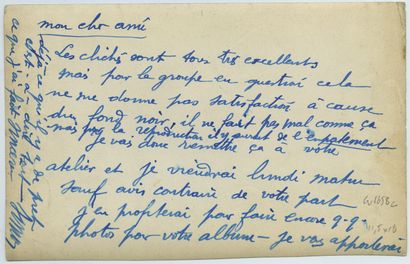 mon cher ami
Les clichés sont tous très excellents
mais pour le groupe en question cela
ne me donne pas satisfaction à cause
du fond noir, il ne fait pas mal comme ça
mais pour la reproduction il y aurait de l'empatement
je vais donc remettre ça à votre
atelier et je viendrai lundi matin
sauf avis contraire de votre part
j'en profiterai pour faire encore q.q.
photos pour votre album - je vous apporterai
déjà ce qu'il y a de prêt
c'est à dire tout
ce que j'ai fait